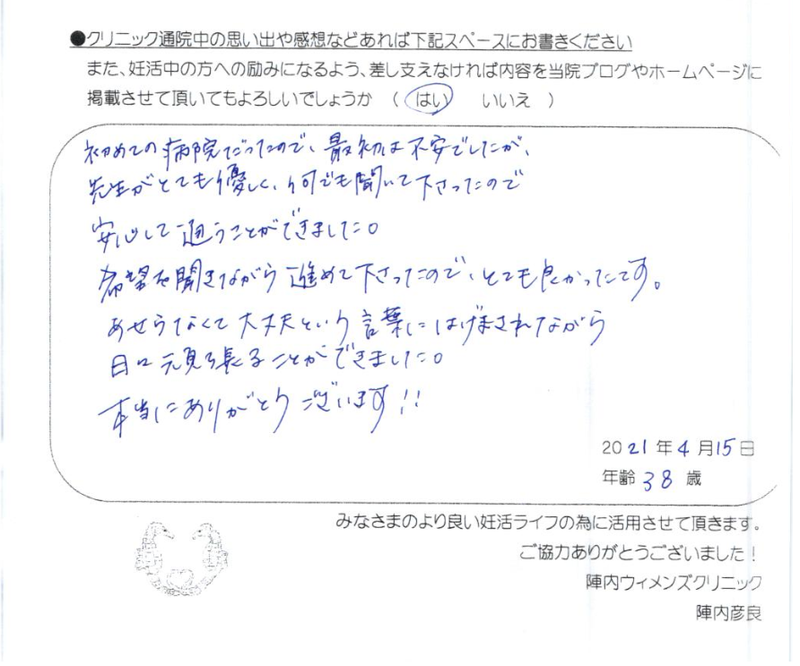 ●クリニック通院中の思い出や感想などあれば下記スペースにお書きください
また、妊活中の方への励みになるよう、差し支えなければ内容を当院ブログやホームページに
掲載させて頂いてもよろしいでしょうか （ はい　　いいえ ）
初めての病院だったので、最初は不安でしたが、
先生がとても優しく、何でも聞いて下さったので
安心して通うことができました。
希望を聞きながら進めて下さったので、とても良かったです。
あせらなくて大丈夫という言葉にはげまされながら
日々頑張ることができました。
本当にありがとうございます!!
2021年4月15日
年齢38歳
みなさまのより良い妊活ライフの為に活用させて頂きます。
ご協力ありがとうございました！
陣内ウィメンズクリニック
陣内彦良